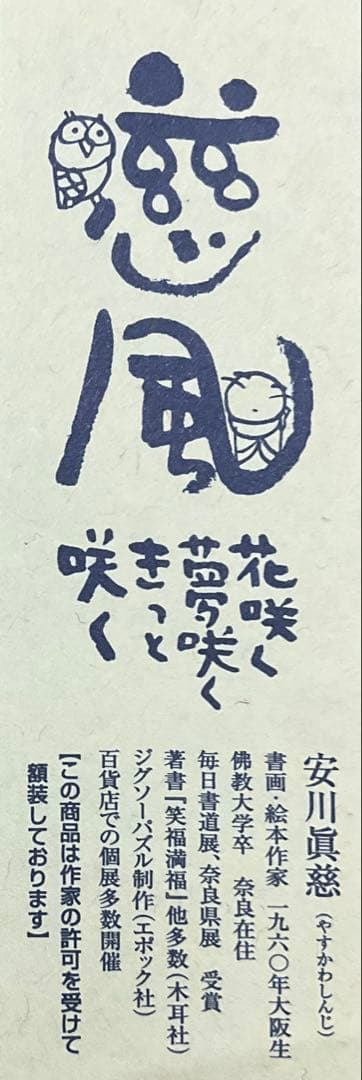 慈
風
花咲く
夢咲く
きっと
咲く
安川眞慈（やすかわしんじ）
書画・絵本作家　一九六〇年大阪生
佛教大学卒　奈良在住
毎日書道展、奈良県展　受賞
著書『笑福満福』他多数（木耳社）
ジグソーパズル制作（エポック社）
百貨店での個展多数開催
【この商品は作家の許可を受けて
額装しております】